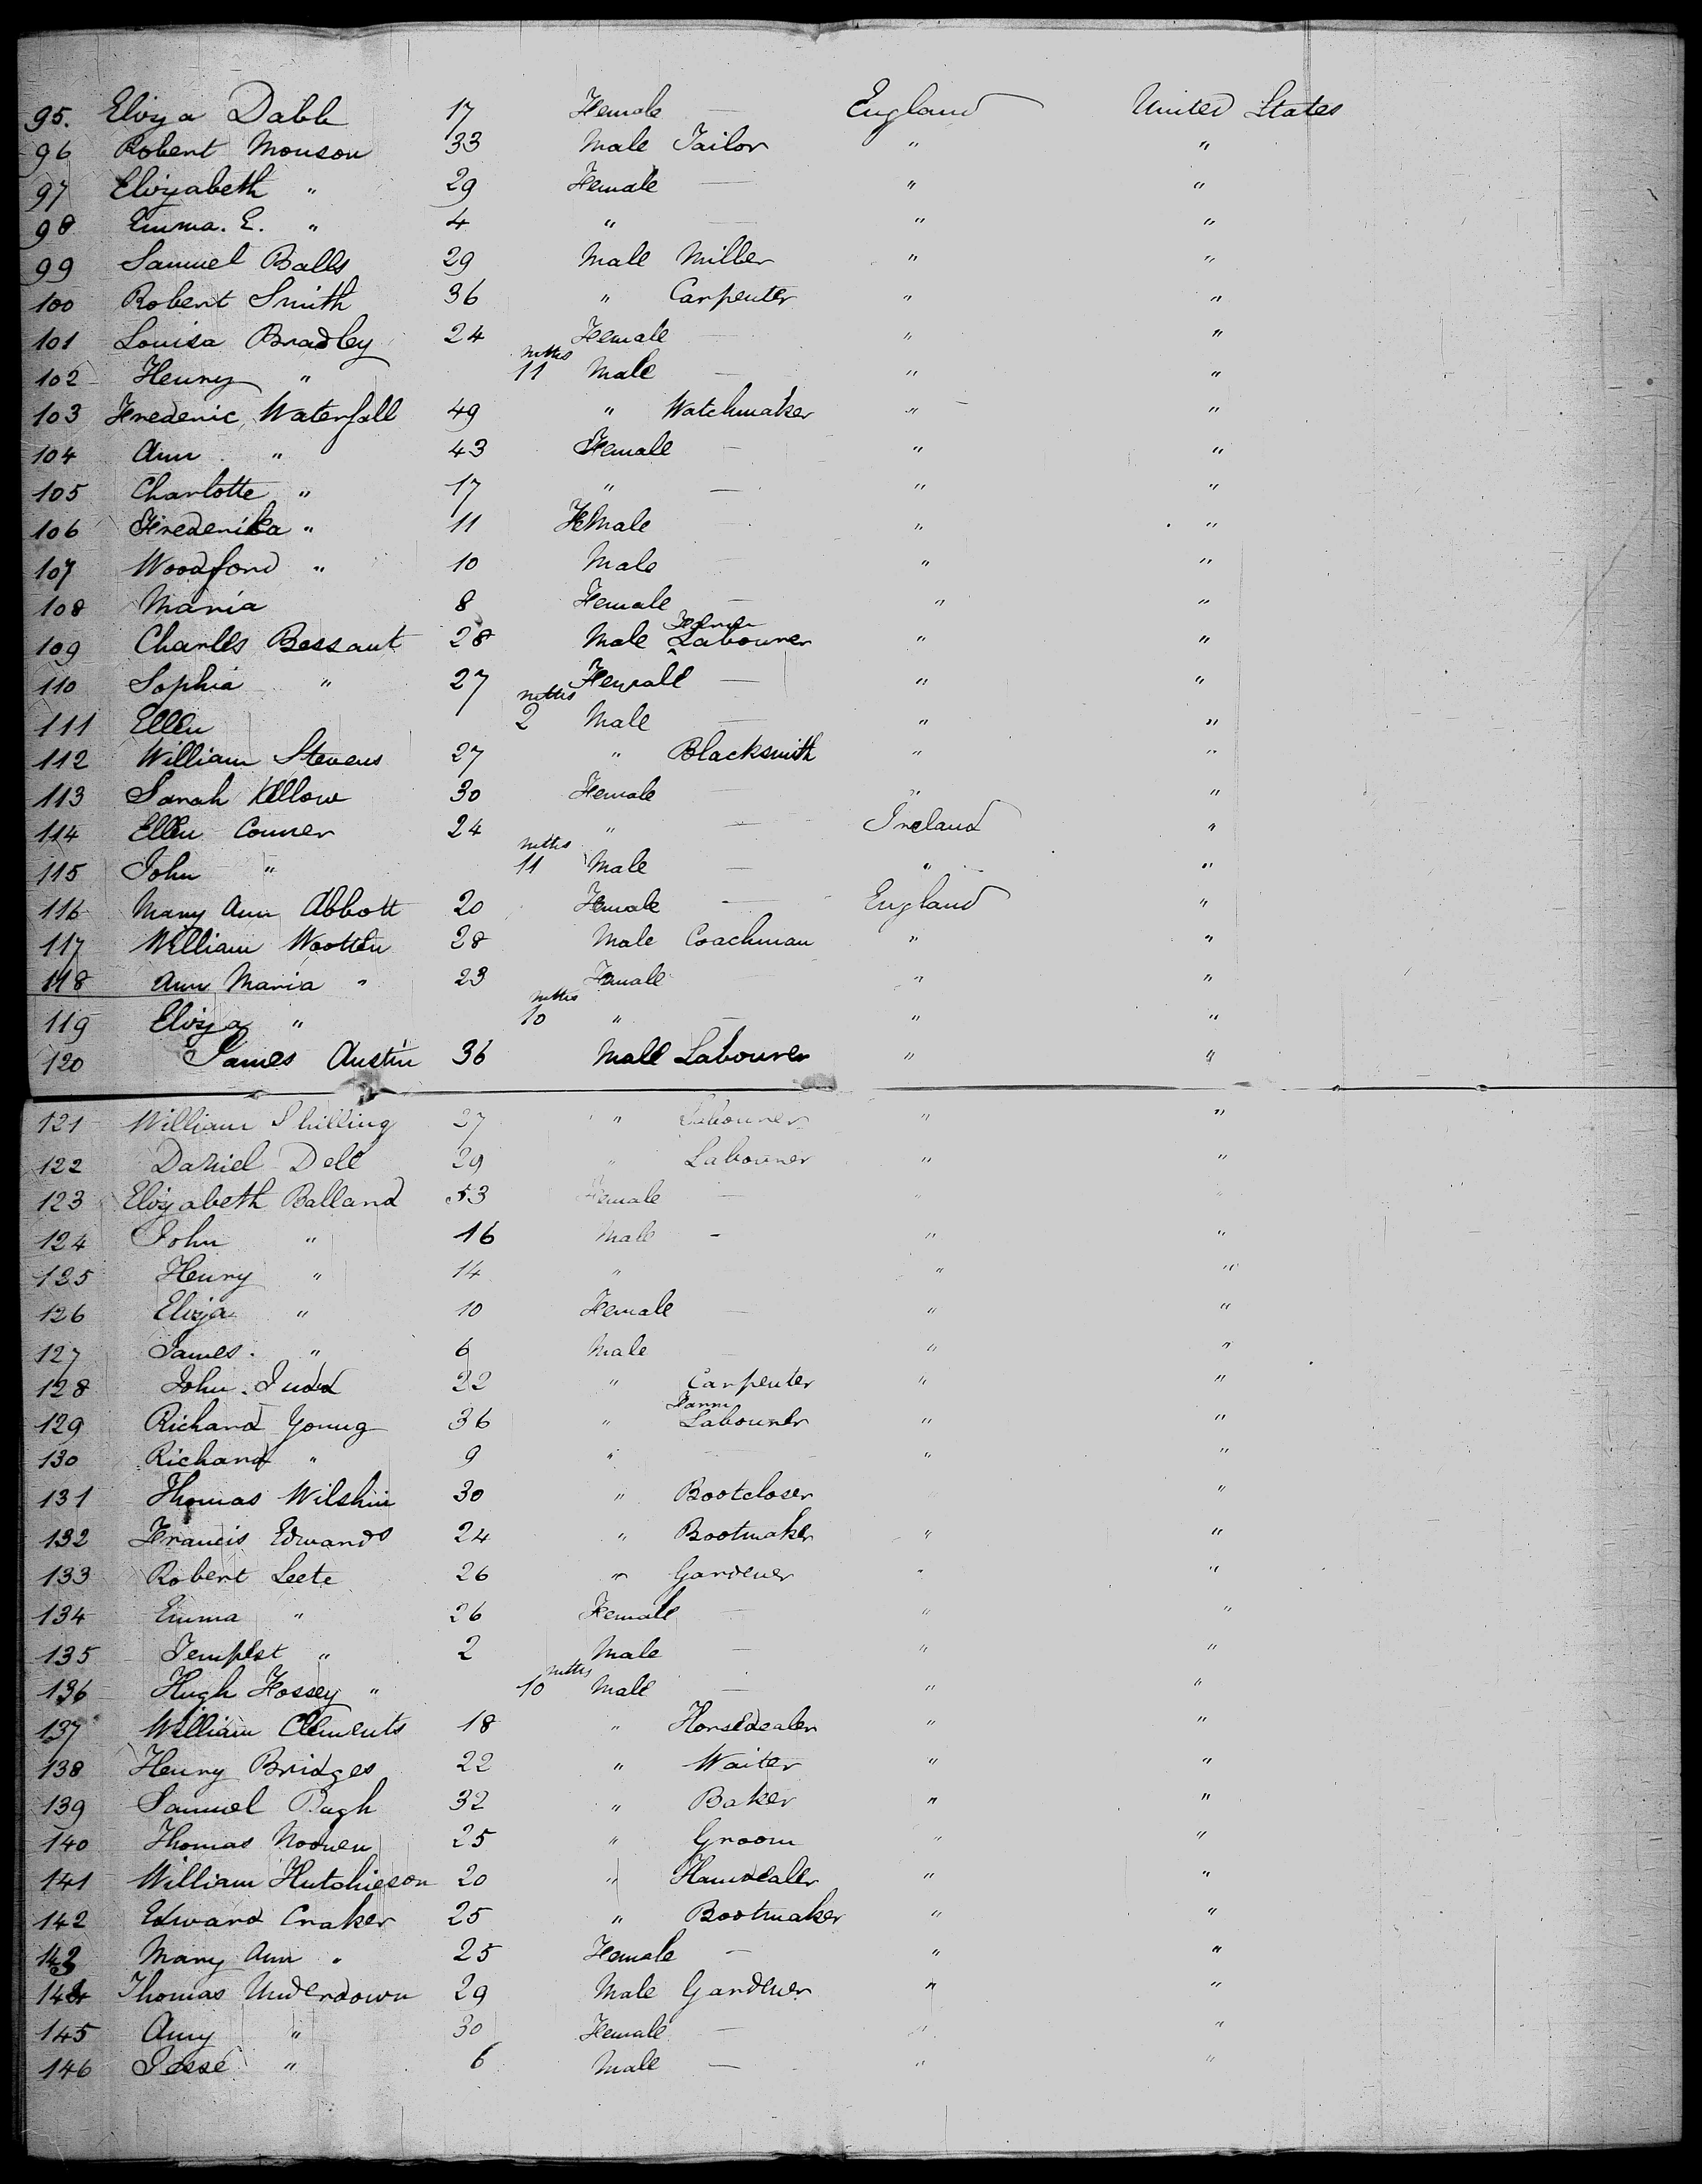 95. Eliza Dabb 17 Female — England United States
96 Robert Monson 33 Male Tailor " "
97 Elizabeth " 29 Female — " "
98 Emma. E. " 4 " — " "
99 Samuel Balls 29 Male Miller " "
100 Robert Smith 36 " Carpenter " "
101 Louisa Bradley 24 Female — " "
102 Henry " 11 mths Male — " "
103 Frederic Waterfall 49 " Watchmaker " "
104 Ann " 43 Female — " "
105 Charlotte " 17 " — " "
106 Frederika " 11 FeMale " "
107 Woodford " 10 Male — " "
108 Maria 8 Female — " "
109 Charles Bessant 28 Male Farm Labourer " "
110 Sophia " 27 Female — " "
111 Ellen 2 mths Male — " "
112 William Stevens 27 " Blacksmith " "
113 Sarah Kellow 30 Female — " "
114 Ellen Conner 24 " — Ireland "
115 John " 11 mths Male — " "
116 Mary Ann Abbott 20 Female — England "
117 William Wootten 28 Male Coachman " "
118 Ann Maria " 23 Female " "
119 Eliza " 10 mths " — " "
120 James Austin 36 Male Labourer " "
121 William Shilling 37 " Labourer " "
122 Daniel Dell 29 " Labourer " "
123 Elizabeth Balland 53 Female — " "
124 John " 16 Male - " "
125 Henry " 14 " " "
126 Eliza " 10 Female — " "
127 James. " 6 Male " "
128 John. Judd 22 " Carpenter " "
129 Richard Young 36 " Farm Labourer " "
130 Richard " 9 " — " "
131 Thomas Wilshin 30 " Bootcloser "
132 Francis Edwards 24 " Bootmaker " "
133 Robert Leete 26 " Gardener " "
134 Emma " 26 Female — " "
135 Tempest " 2 Male — " "
136 Hugh Hossey " 10 mths Male — " "
137 William Clements 18 " Horsedealer " "
138 Henry Bridges 22 " Waiter " "
139 Samuel Pugh 32 " Baker " "
140 Thomas 25 " Groom " "
141 William Hutchieson 20 " " "
142 Edward Craker 25 " Bootmaker " "
143 Mary Ann " 25 Female — " "
144 Thomas Underdown 29 Male Gardener " "
145 Amy " 30 Female — " "
146 Jesse " 6 Male — " "